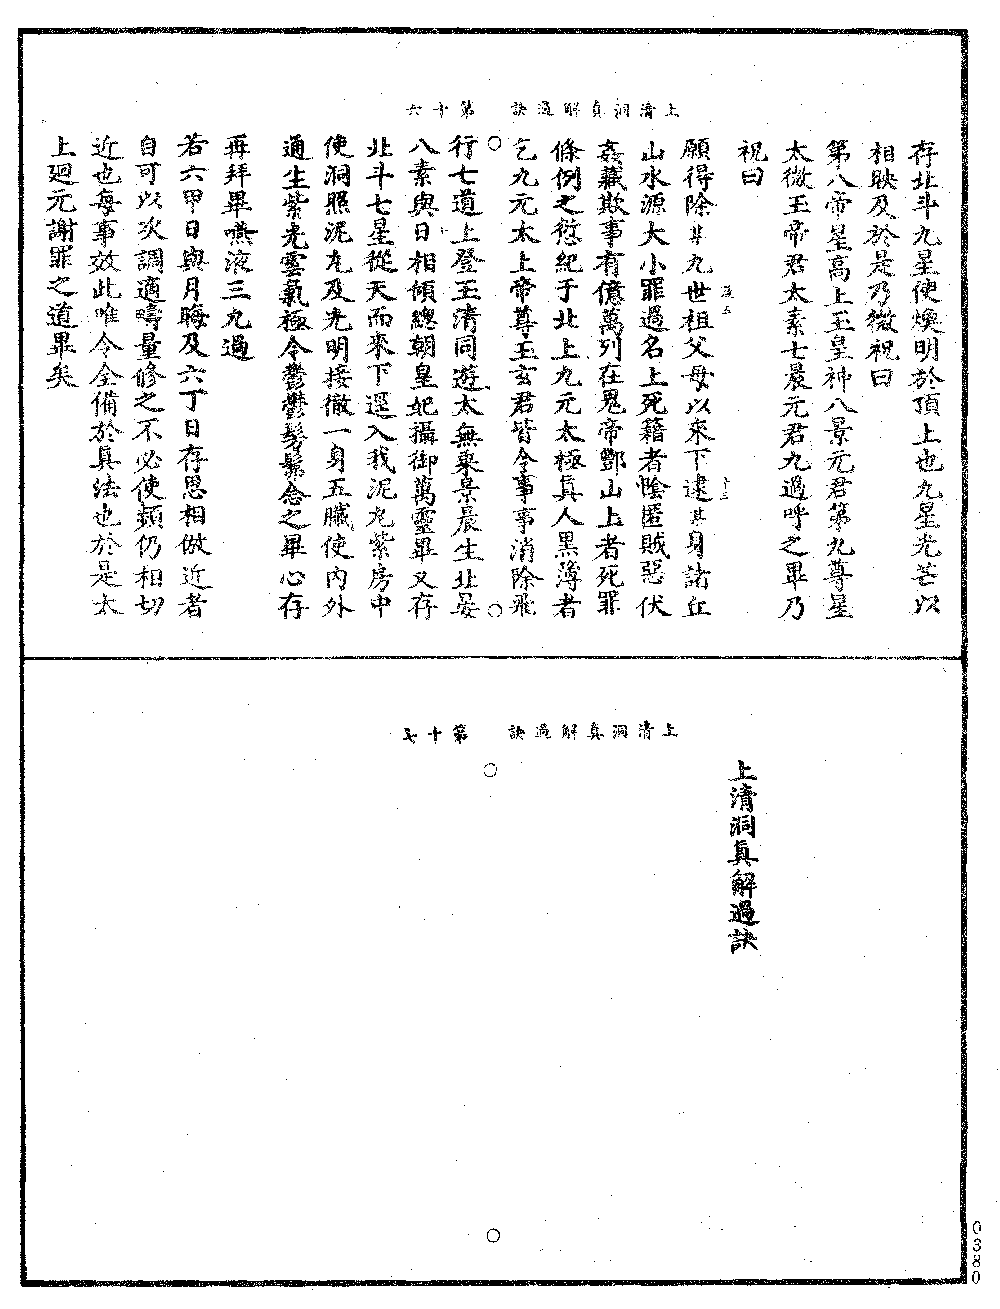 上清洞真解過訣　第十六
存北斗九星使煥明於頂上也九星光芒以
相映及於是乃微祝曰
第八帝星高上玉皇神八景元君第九尊星
太微玉帝君太素七晨元君九過呼之畢乃
祝曰
願得除某九世祖父母以來下逮某身諸丘
山水源大小罪過名上死籍者陰匿賊惡伏
姦藏欺事有億萬列在鬼帝酆山上者死罪
條例之愆紀于北上九元太極真人黑簿者
乞九元太上帝尊玉玄君皆令事事消除飛
行七道上登玉清同遊太無東景晨生北晏
八素與日相傾總朝皇妃攝御萬靈畢又存
北斗七星從天而來下還入我泥丸紫房中
使洞照泥丸及光明接徹一身五臟使內外
通生紫光雲氣極令鬱鬱髣髴念之畢心存
再拜畢嚥液三九過
若六甲日與月晦及六丁日存思相倣近者
自可以次調適疇量修之不必使頻仍相切
近也每事效此唯令全備於真法也於是太
上廻元謝罪之道畢矣
上清洞真解過訣　第十七
上清洞真解過訣
0380